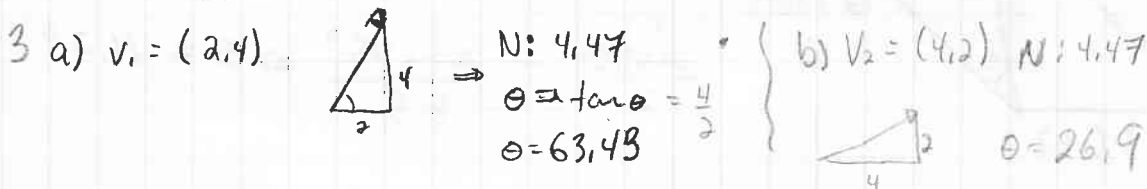 3 a) V₁ = (2,4)
4
2
⇒ N: 4,47
θ ⇒ tan θ = 4/2
θ = 63,43
b) V₂ = (4,2) N: 4,47
2
4
θ = 26,9